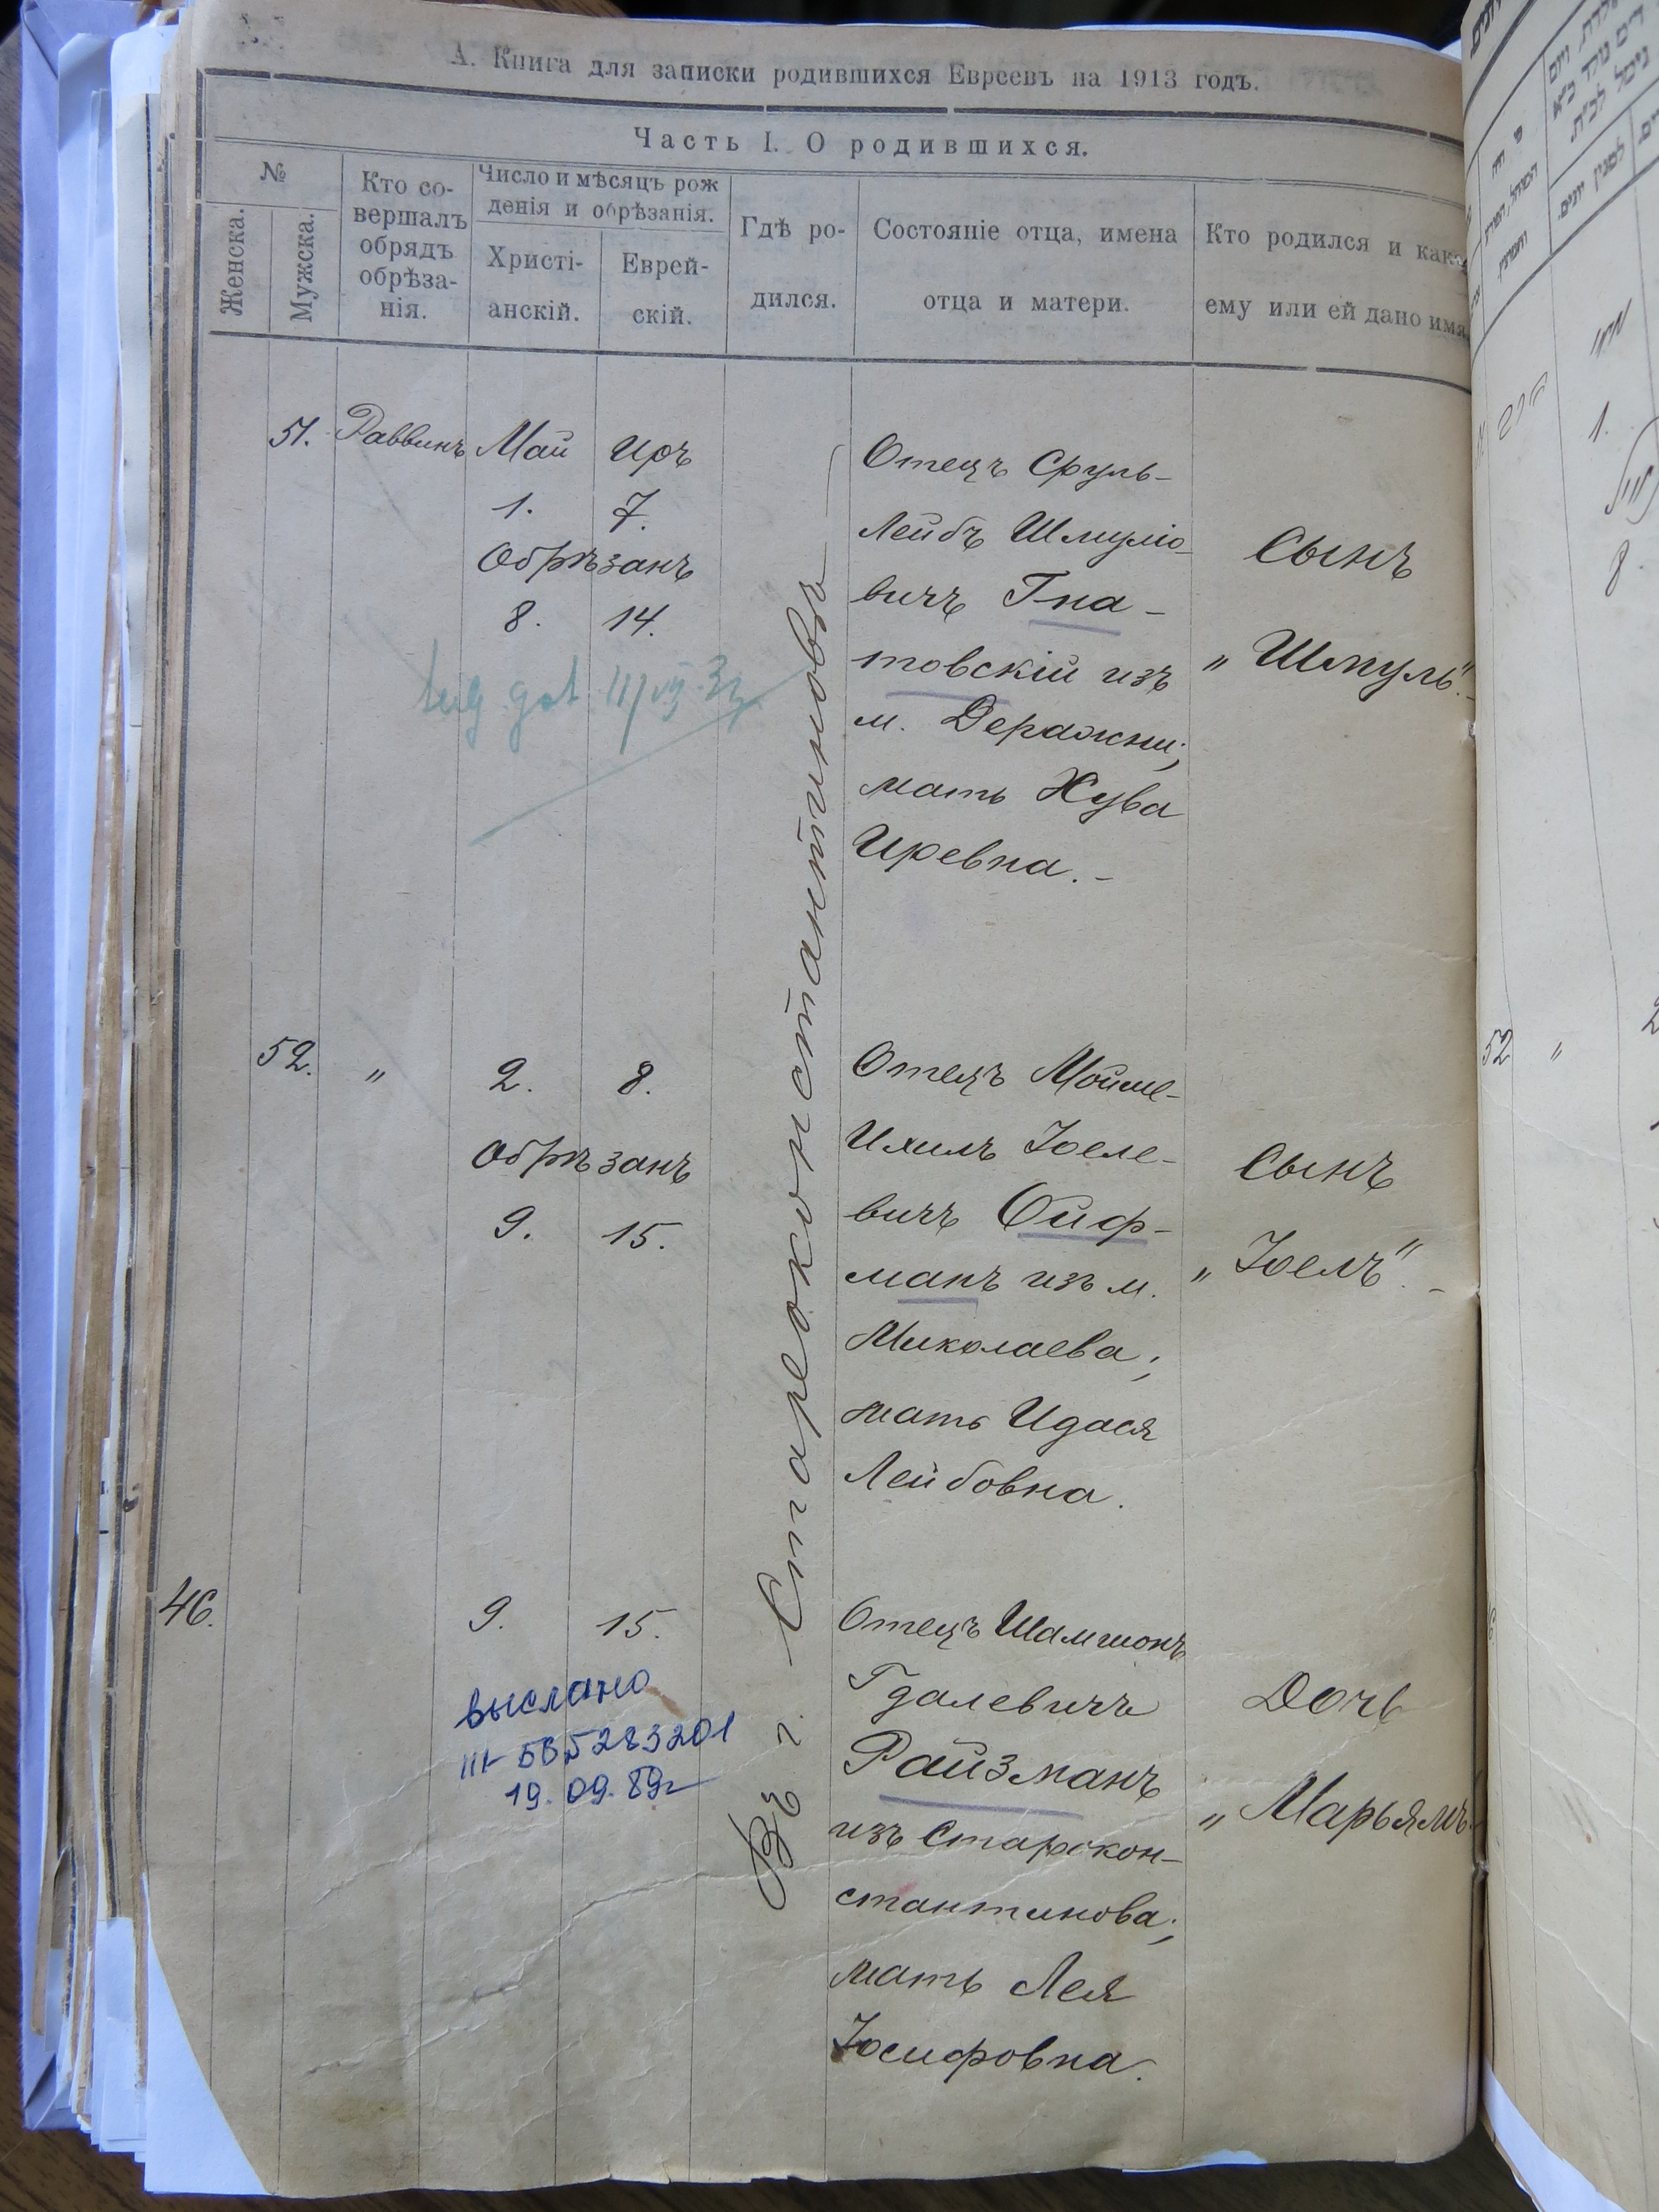 А. Книга для записки родившихся Евреевъ на 1913 годъ.
Часть I. О родившихся.
№
Женска.
Мужска.
Кто со-
вершалъ
обрядъ
обрѣза-
нія.
Число и мѣсяцъ рож
денія и обрѣзанія.
Христі-
анскій.
Еврей-
скій.
Гдѣ ро-
дился.
Состояніе отца, имена
отца и матери.
Кто родился и како
ему или ей дано имя
51. Раввинъ Май Иръ
1. 7.
Обрѣзанъ
8. 14.
Отецъ Сруль-
Лейбъ Шмуліо-
вичъ Гна-
товскій изъ
м. Деражни;
мать Хува
Иревна. -
Сынъ
„Шмуль". -
Въ г. Староконстантиновѣ
52. „ 2. 8.
Обрѣзанъ
9. 15.
Отецъ Мойше-
Ихилъ Іоеле-
вичъ Ойф-
манъ изъ м.
Миколаева;
мать Идася
Лейбовна.
Сынъ
„Іоелъ". -
46. 9. 15.
выслано
19.09.89г
Отецъ Шамшонъ
Гдалевичъ
Райзманъ
изъ Старокон-
стантинова;
мать Лея
Іосифовна.
Дочь
„Марьямъ
52 „